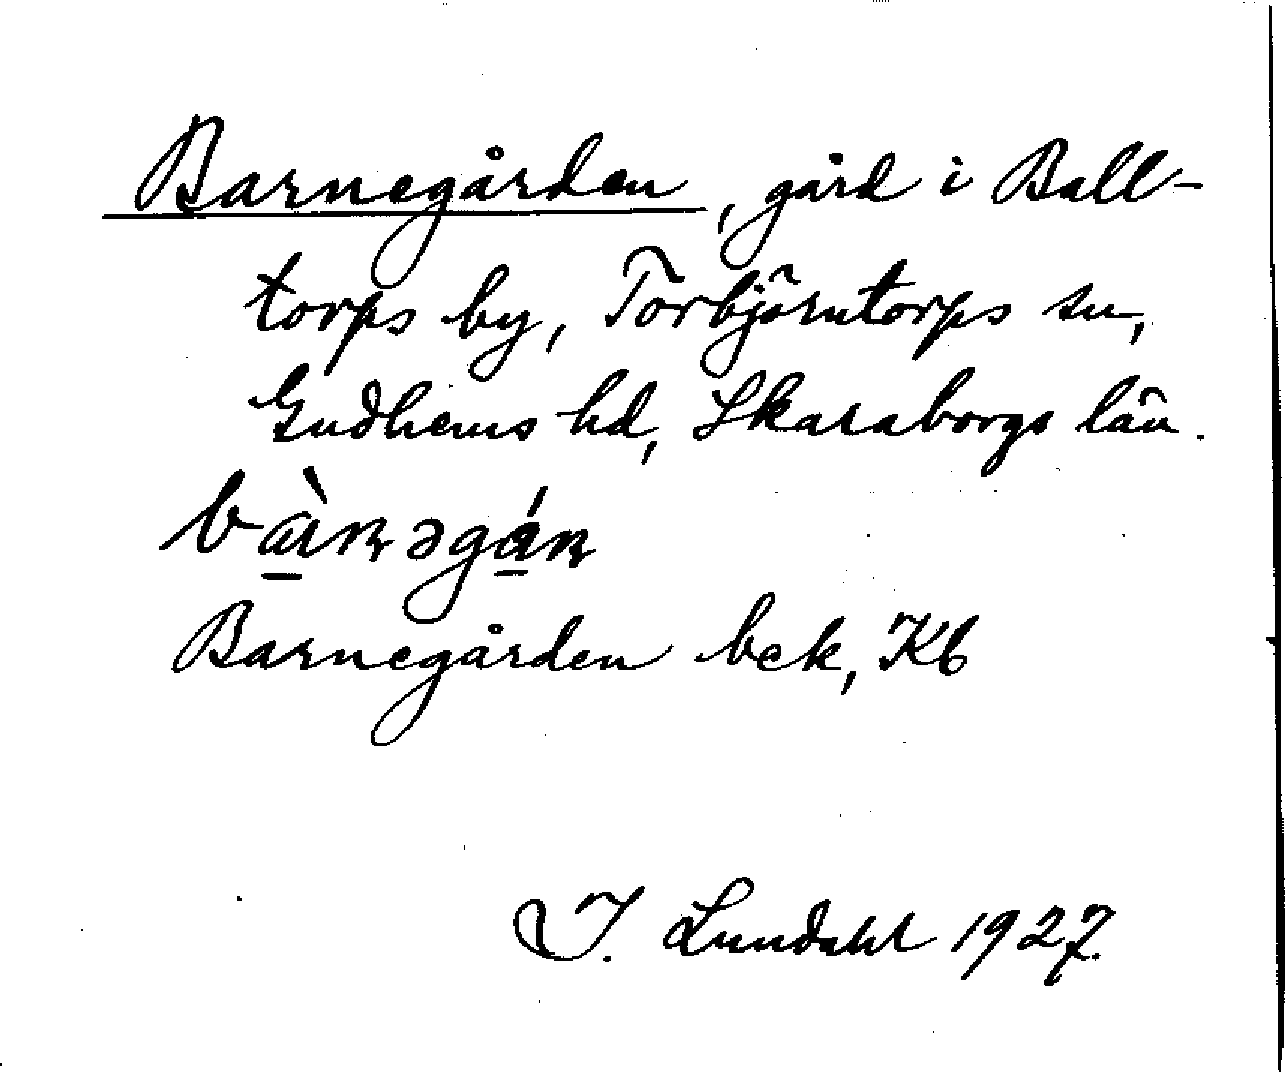 Barnegården, gård i Ball-
torps by, Torbjörntorps sn,
Gudhems hd, Skaraborgs län.
Barnegården bek, Kb
I. Lundahl 1927.